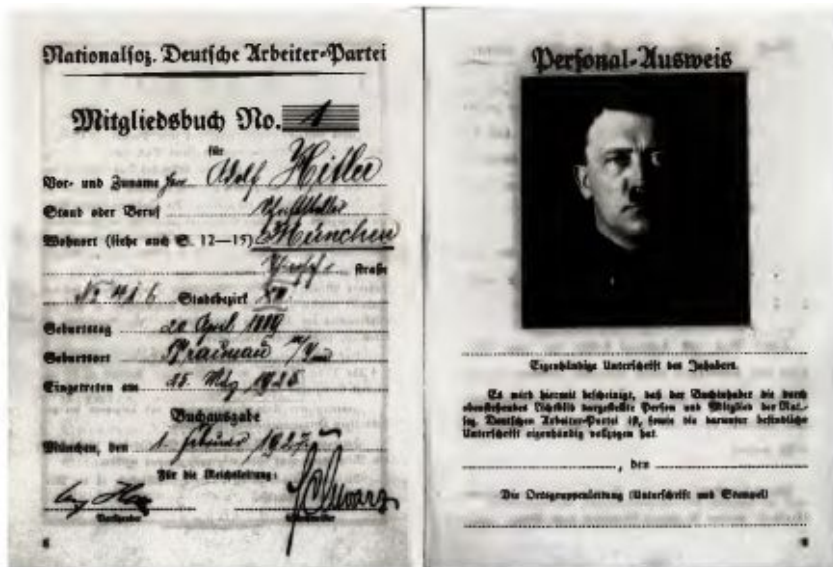 Nationalsoz. Deutsche Arbeiter-Partei
Mitgliedsbuch No. 1
für
Vor- und Zuname Adolf Hitler
Stand oder Beruf Schriftsteller
Wohnort (siehe auch S. 12—15) München
straße
Stadtbezirk
Geburtstag 20 April 1889
Geburtsort Braunau
Eingetreten am 1925
Buchausgabe
München, den 1. 1927
Für die Reichsleitung:
Schwarz
Personal-Ausweis
Eigenhändige Unterschrift des Inhabers.
Es wird hiermit bescheinigt, daß der Buchinhaber die durch
obenstehendes Lichtbild dargestellte Person und Mitglied der Nat.-
soz. Deutschen Arbeiter-Partei ist, sowie die darunter befindliche
Unterschrift eigenhändig vollzogen hat.
, den
Die Ortsgruppenleitung (Unterschrift und Stempel)